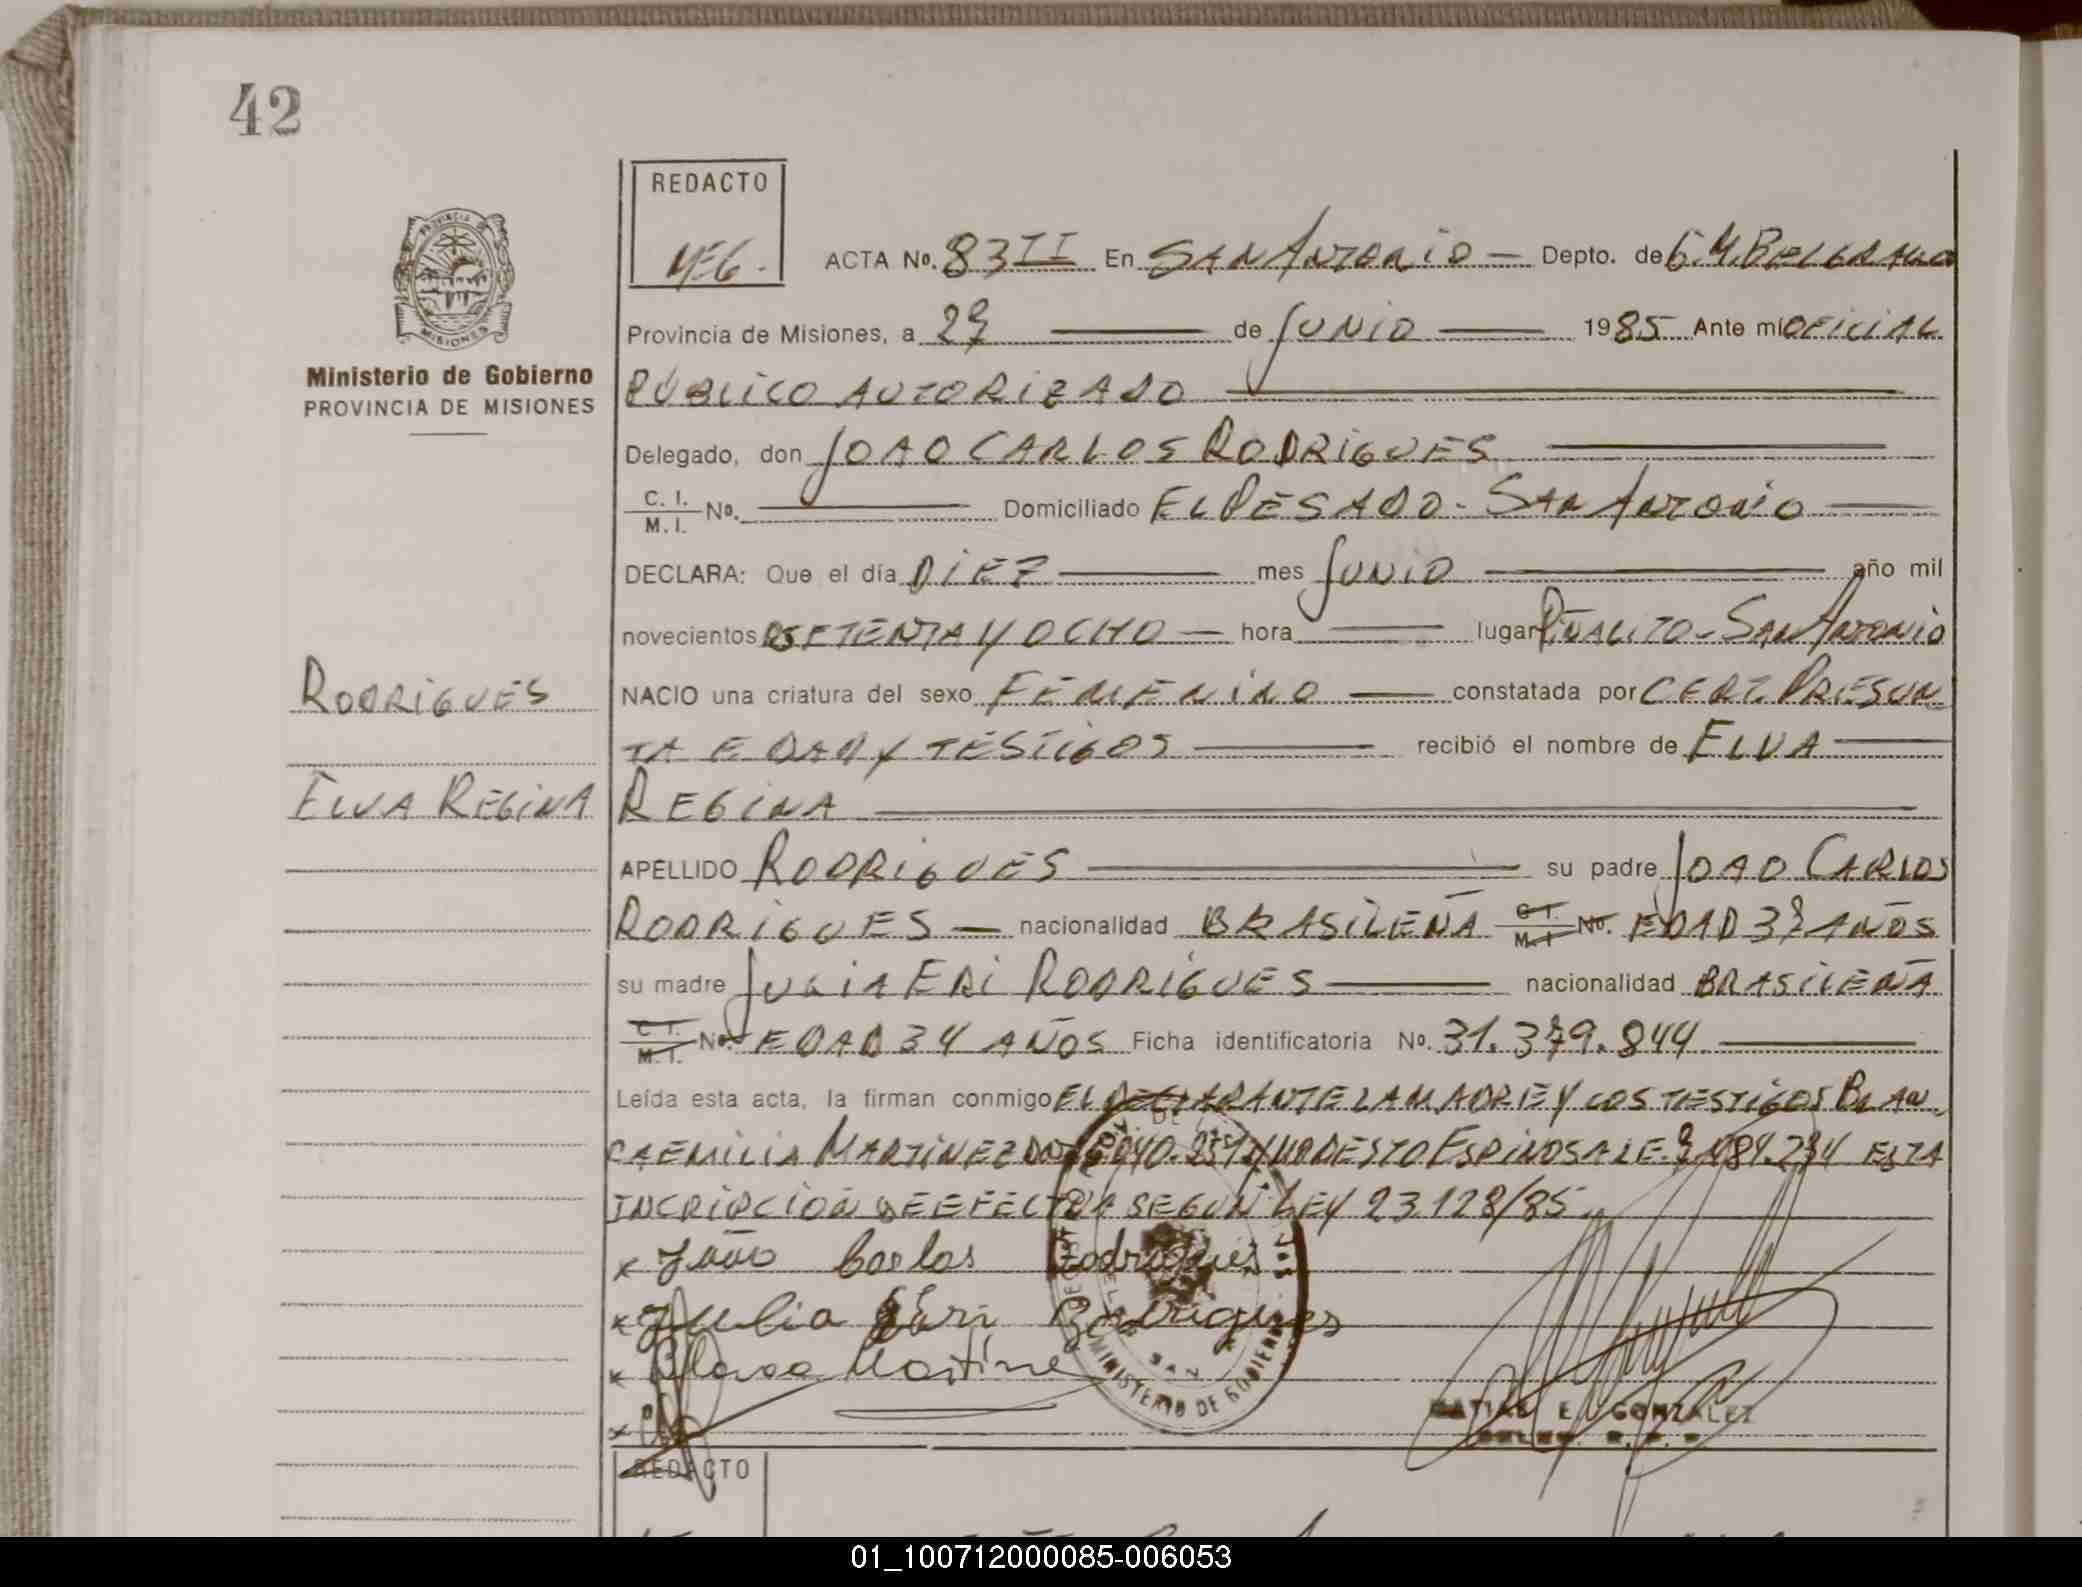 42
REDACTO
MEG.
ACTA No. 83 II En SAN ANTONIO — Depto. de G. M. BELGRANO
Provincia de Misiones, a 29 — de JUNIO — 1985 Ante mi OFICIAL
PUBLICO AUTORIZADO
Ministerio de Gobierno
PROVINCIA DE MISIONES
Delegado, don JOAO CARLOS RODRIGUES
C. I. / M. I. No. — Domiciliado EL PESADO - SAN ANTONIO —
DECLARA: Que el día DIEZ — mes JUNIO — año mil
novecientos SETENTA Y OCHO — hora — lugar PIÑALITO - SAN ANTONIO
RODRIGUES
NACIO una criatura del sexo FEMENINO — constatada por CERT. PRESUN
TA EDAD Y TESTIGOS — recibió el nombre de ELVA —
ELVA REGINA
REGINA
APELLIDO RODRIGUES — su padre JOAO CARLOS
RODRIGUES — nacionalidad BRASILEÑA C. I. / M. I. No. EDAD AÑOS
su madre JULIA ERI RODRIGUES — nacionalidad BRASILEÑA
C. I. / M. I. No. EDAD 34 AÑOS Ficha identificatoria No. 31.379.844
Leída esta acta, la firman conmigo EL DECLARANTE LA MADRE Y LOS TESTIGOS BLAN
CA EMILIA MARTINEZ Y MODESTO ESPINOSA LE. ESTA
INCRIPCION SE EFECTUA SEGUN LEY 23.128/85
x João Carlos Rodrigues
x Julia Eri Rodrigues
x Blanca Martine
x
MINISTERIO DE GOBIERNO
MATIAS E. GONZALEZ
REDACTO
01_100712000085-006053